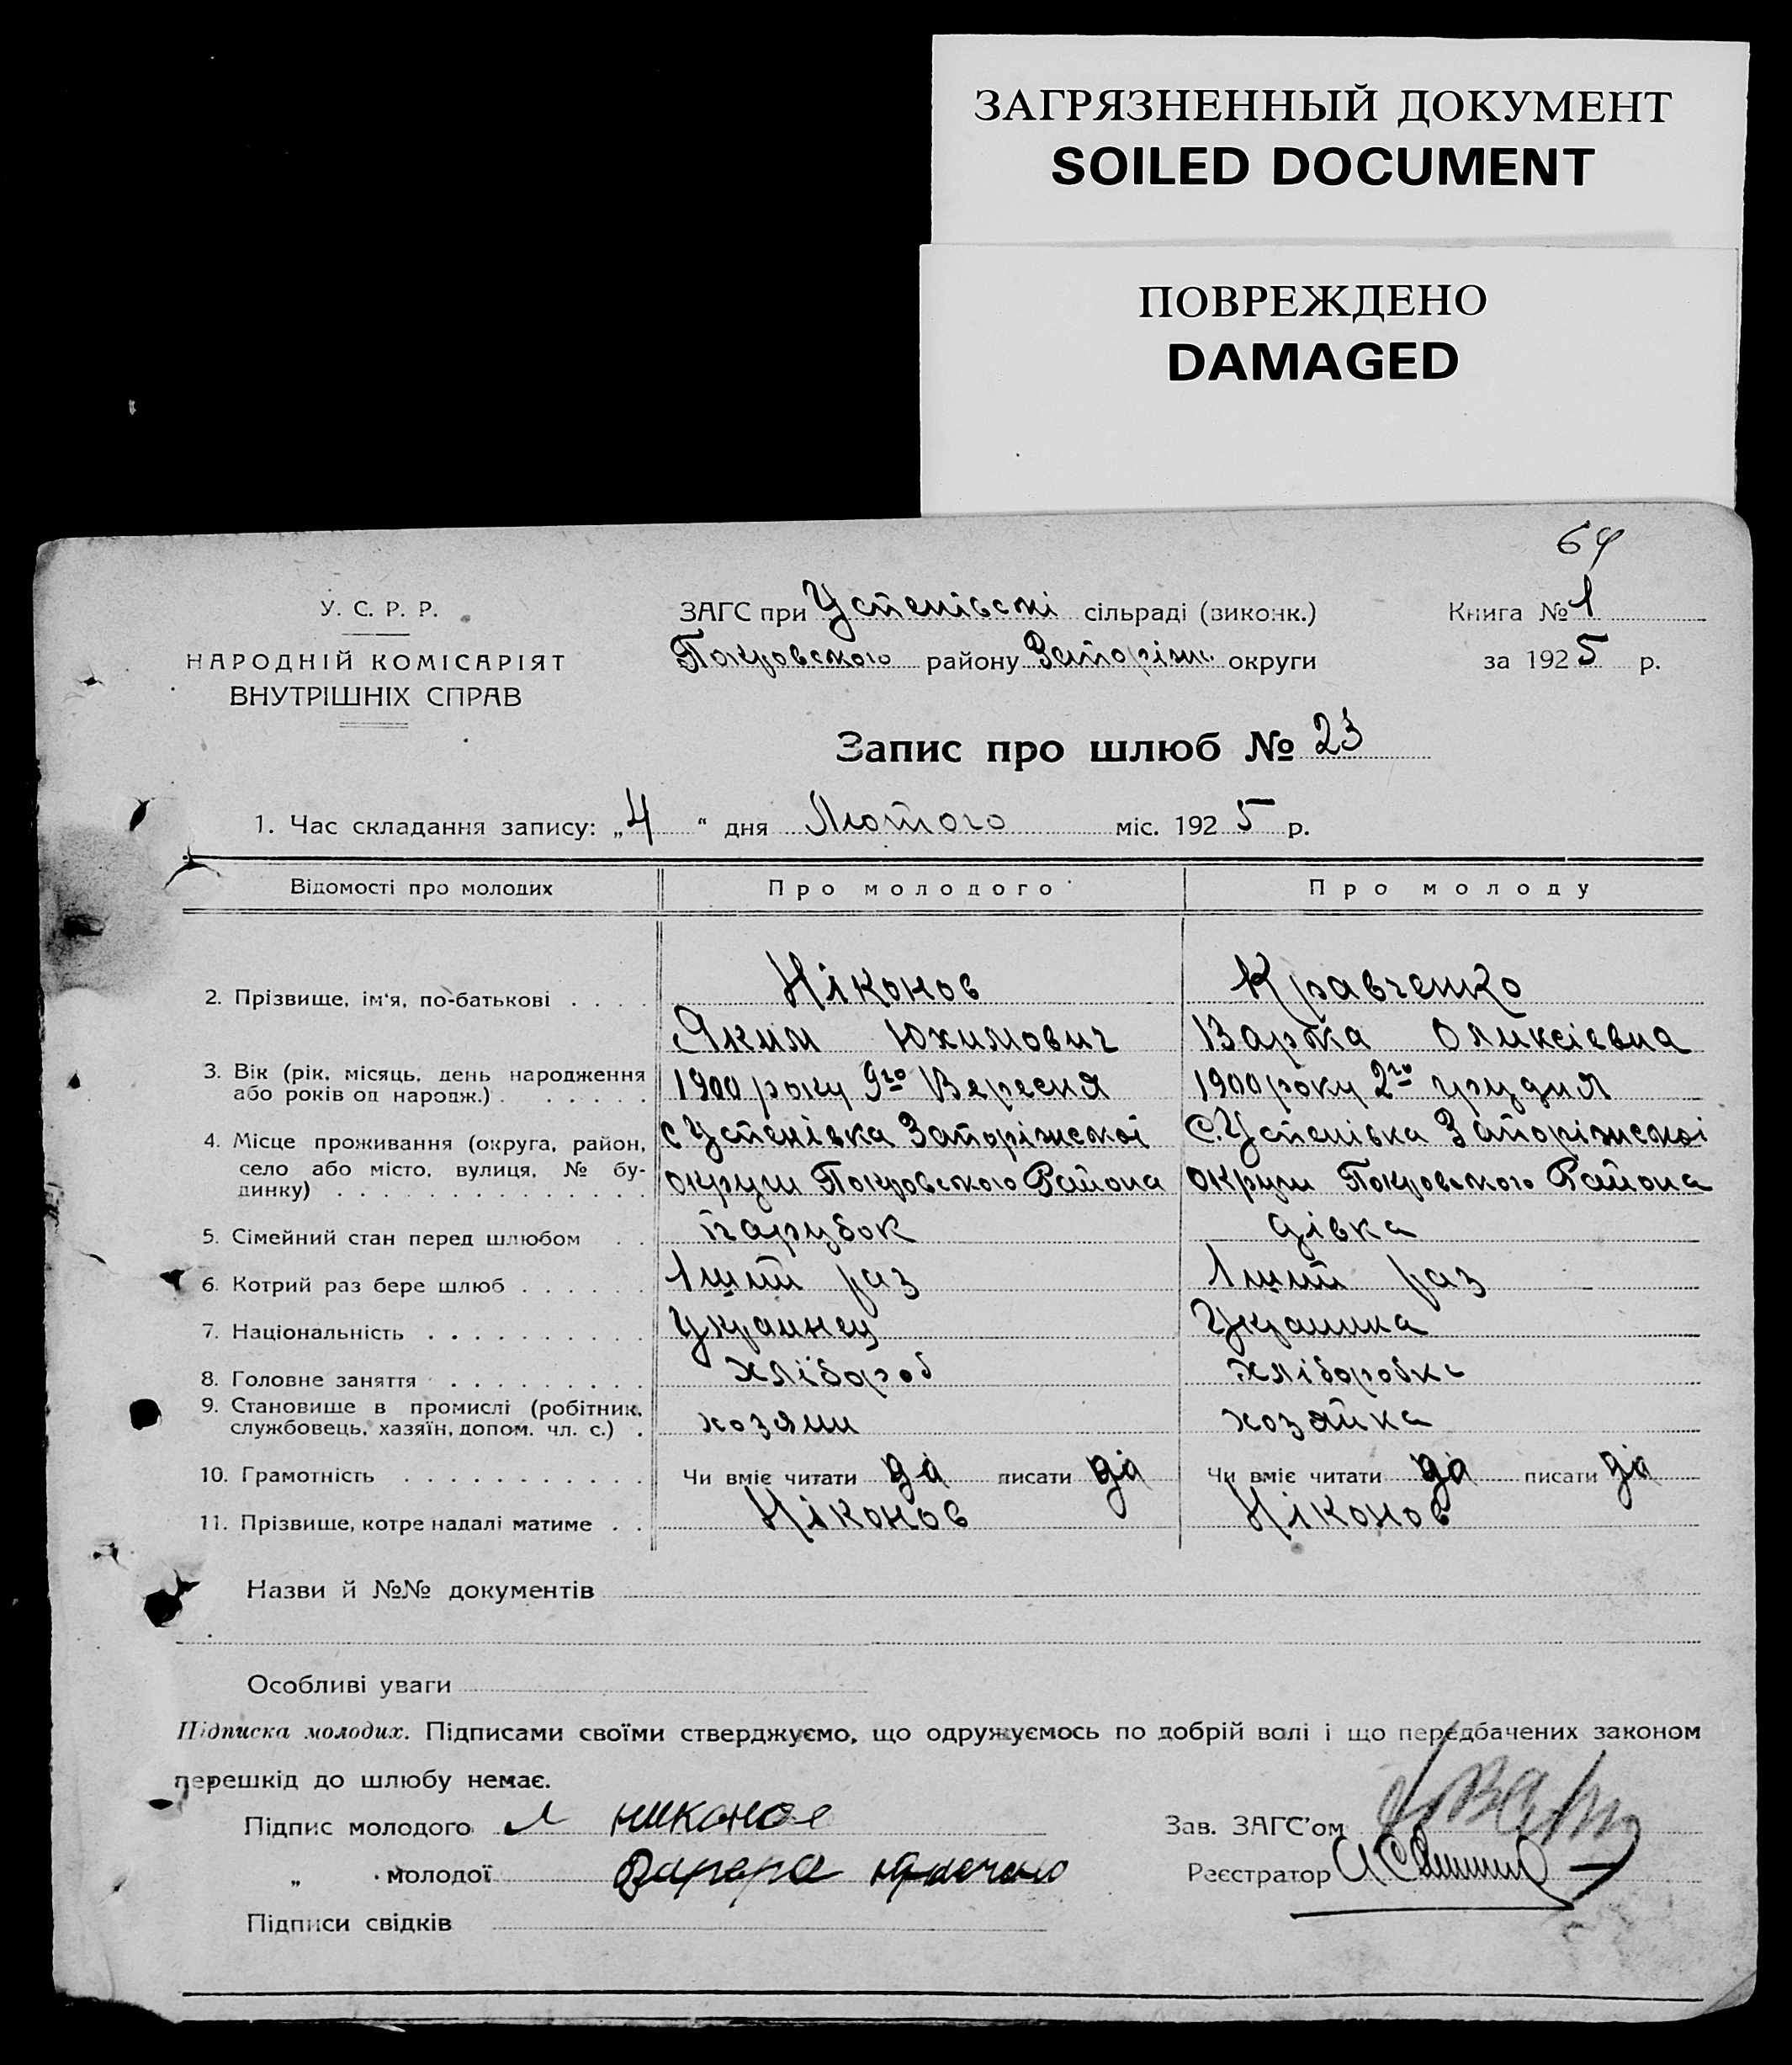 ЗАГРЯЗНЕННЫЙ ДОКУМЕНТ
SOILED DOCUMENT
ПОВРЕЖДЕНО
DAMAGED
64
У. С. Р. Р.
НАРОДНІЙ КОМІСАРІЯТ
ВНУТРІШНІХ СПРАВ
ЗАГС при Устенівскі сільраді (виконк.)
Покровського району Запоріжж. округи
Книга № 1
за 1925 р.
Запис про шлюб № 23
1. Час складання запису: „4“ дня Лютого міс. 1925 р.
Відомості про молодих Про молодого Про молоду
2. Прізвище, ім'я, по-батькові . . . . Ніконов Кравченко
Яким Юхимович Варка Оликсієвна
3. Вік (рік, місяць, день народження або років од народж.) . . . . . . 1900 року 9го Вересня 1900 року 2го грудня
4. Місце проживання (округа, район, село або місто, вулиця, № будинку) . . . с Устенівка Запоріжської С. Устенівка Запоріжскоі
округи Покровського Района округи Покровського Района
5. Сімейний стан перед шлюбом . . парубок дівка
6. Котрий раз бере шлюб . . . . . . 1ший раз 1ший раз
7. Національність . . . . . . . . . . Украинец Украинка
8. Головне заняття . . . . . . . . . хлібороб хлiборобка
9. Становище в промислі (робітник, службовець, хазяїн, допом. чл. с.) . хозяин хозяйка
10. Грамотність . . . . . . . . . . . Чи вміє читати да писати да Чи вміє читати да писати да
11. Прізвище, котре надалі матиме . . Ніконов Ніконов
Назви й №№ документів
Особливі уваги
Підписка молодих. Підписами своїми стверджуємо, що одружуємось по добрій волі і що передбачених законом
перешкід до шлюбу немає.
Підпис молодого Никонов
Зав. ЗАГС'ом
„ молодої
Реєстратор
Підписи свідків